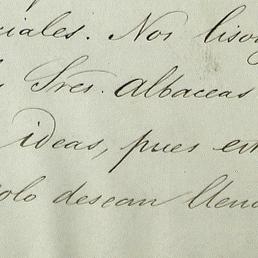 ciales. Nos lison
Sres. Albaceas
ideas, pues est
solo desean llena